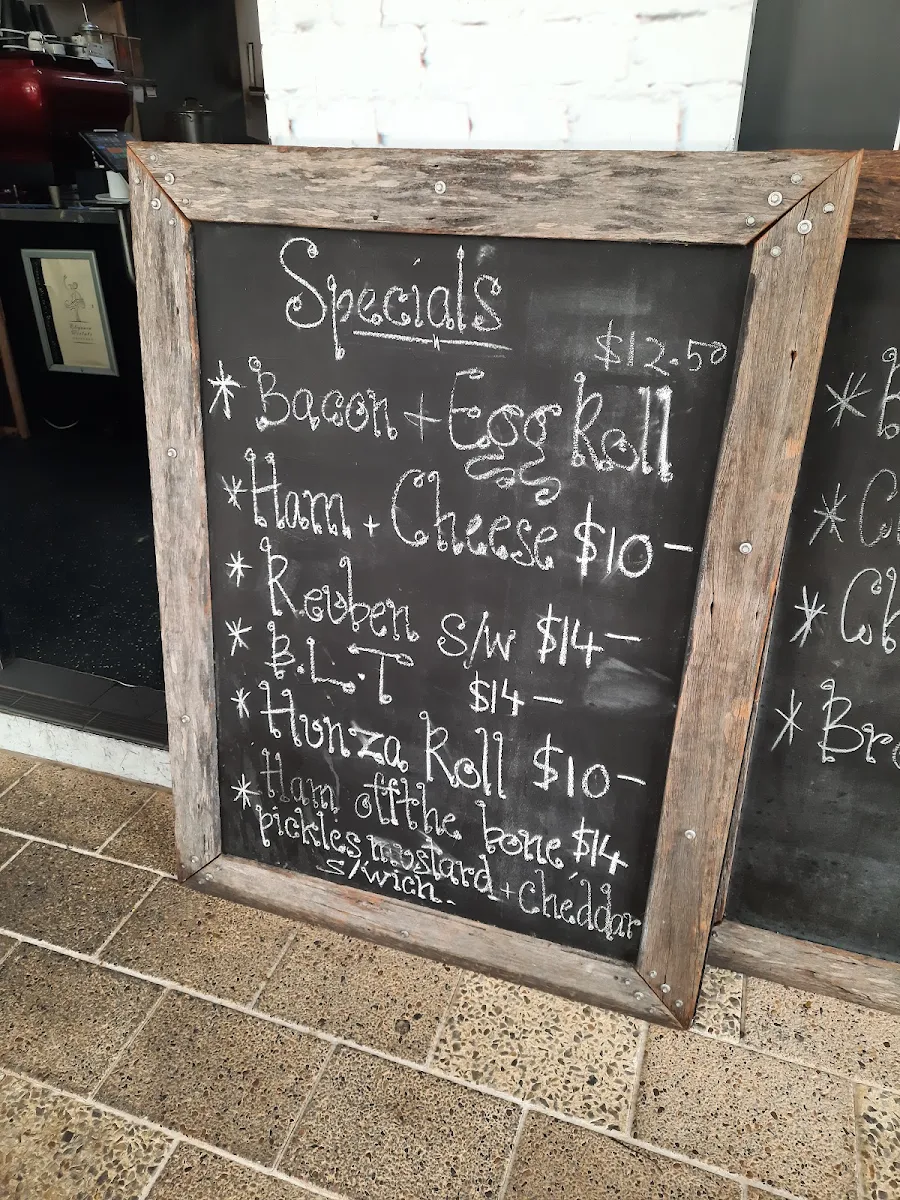 Specials
$12.50
* Bacon + Egg Roll
* Ham + Cheese $10-
* Reuben S/W $14-
* B.L.T $14-
* Hunza Roll $10-
* Ham off the bone $14
pickles mustard + cheddar
s/wich.
* B
* C
* Ch
* Bro